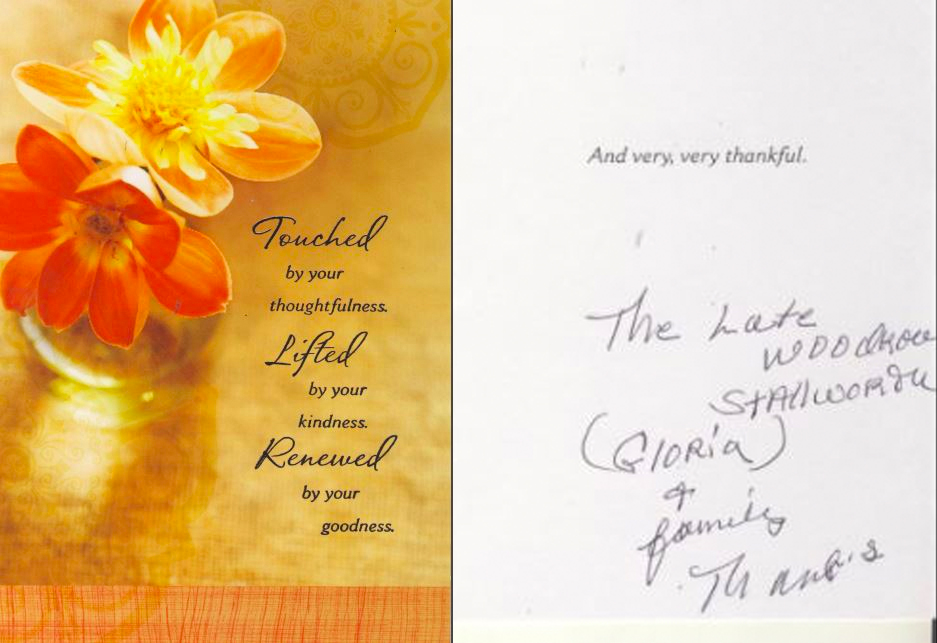 Touched
by your
thoughtfulness.
Lifted
by your
kindness.
Renewed
by your
goodness.
And very, very thankful.
The Late
Woodrow
Stallworth
(Gloria)
&
family
Thanks